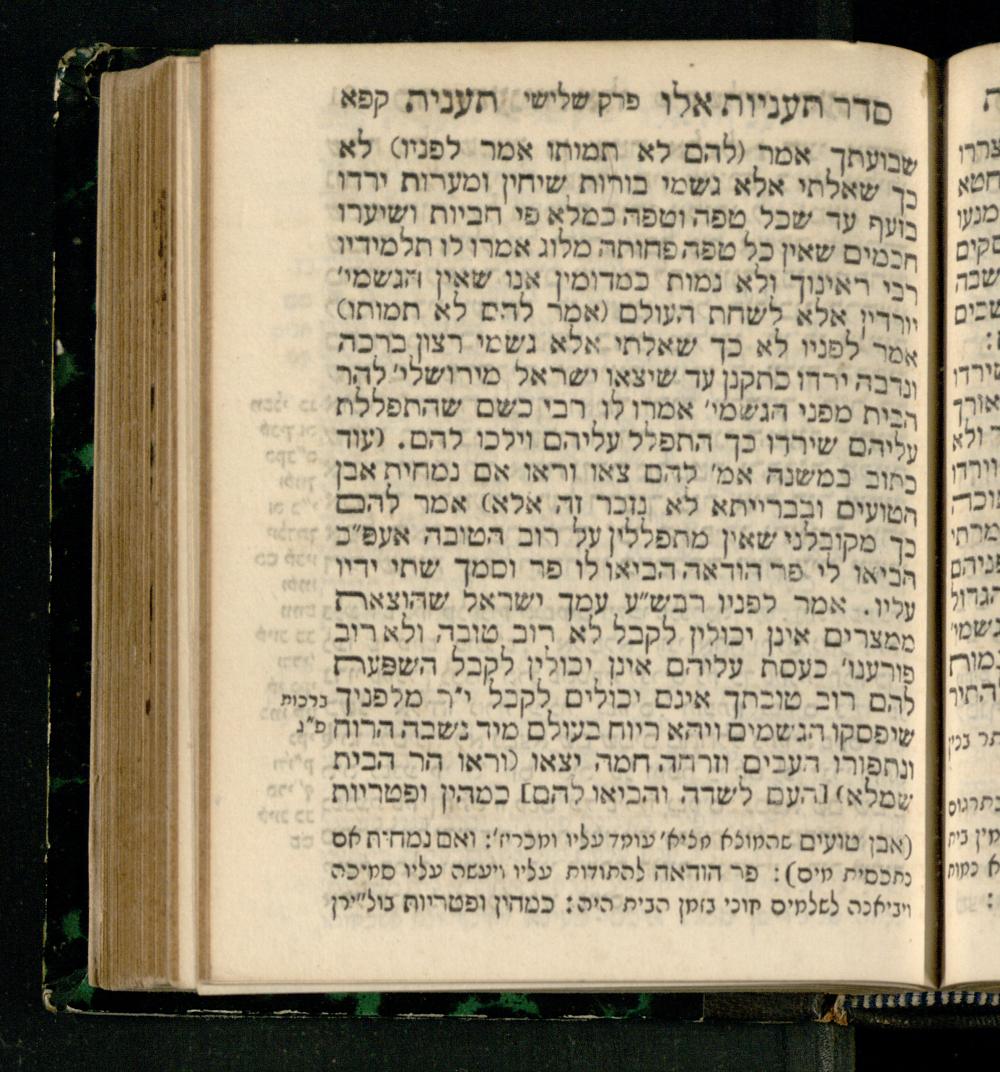 סדר תעניות אלו פרק שלישי תענית קפא
שבועתך אמר (להם לא תמותו אמר לפניו) לא
כך שאלתי אלא גשמי בורות שיחין ומערות ירדו
בזעף עד שכל טפה וטפה כמלא פי חביות ושיערו
חכמים שאין כל טפה פחותה מלוג אמרו לו תלמידיו
רבי ראינוך ולא נמות כמדומין אנו שאין הגשמי'
יורדין אלא לשחת העולם (אמר להם לא תמותו)
אמר לפניו לא כך שאלתי אלא גשמי רצון ברכה
ונדבה ירדו כתקנן עד שיצאו ישראל מירושלי' להר
הבית מפני הגשמי' אמרו לו רבי כשם שהתפללת
עליהם שירדו כך התפלל עליהם וילכו להם. (עוד
כתוב במשנה אמ' להם צאו וראו אם נמחית אבן
הטועים ובברייתא לא נזכר זה אלא) אמר להם
כך מקובלני שאין מתפללין על רוב הטובה אעפ"כ
הביאו לי פר הודאה הביאו לו פר וסמך שתי ידיו
עליו. אמר לפניו רבש"ע עמך ישראל שהוצאת
ממצרים אינן יכולין לקבל לא רוב טובה ולא רוב
פורענו' כעסת עליהם אינן יכולין לקבל השפעת
להם רוב טובתך אינם יכולים לקבל י"ר מלפניך
ברכות
שיפסקו הגשמים ויהא ריוח בעולם מיד נשבה הרוח
פ"ג
ונתפזרו העבים וזרחה חמה יצאו (וראו הר הבית
שמלא) [העם לשדה והביאו להם] כמהין ופטריות
(אבן טועים שהמוצא מציא' עומד עליו ומכריז': ואם נמחית אם
נתכסית מים): פר הודאה להתודות עליו ויעשה עליו סמיכה
ויביאנה לשלמים חוני בזמן הבית היה: כמהין ופטריות בול"ירן